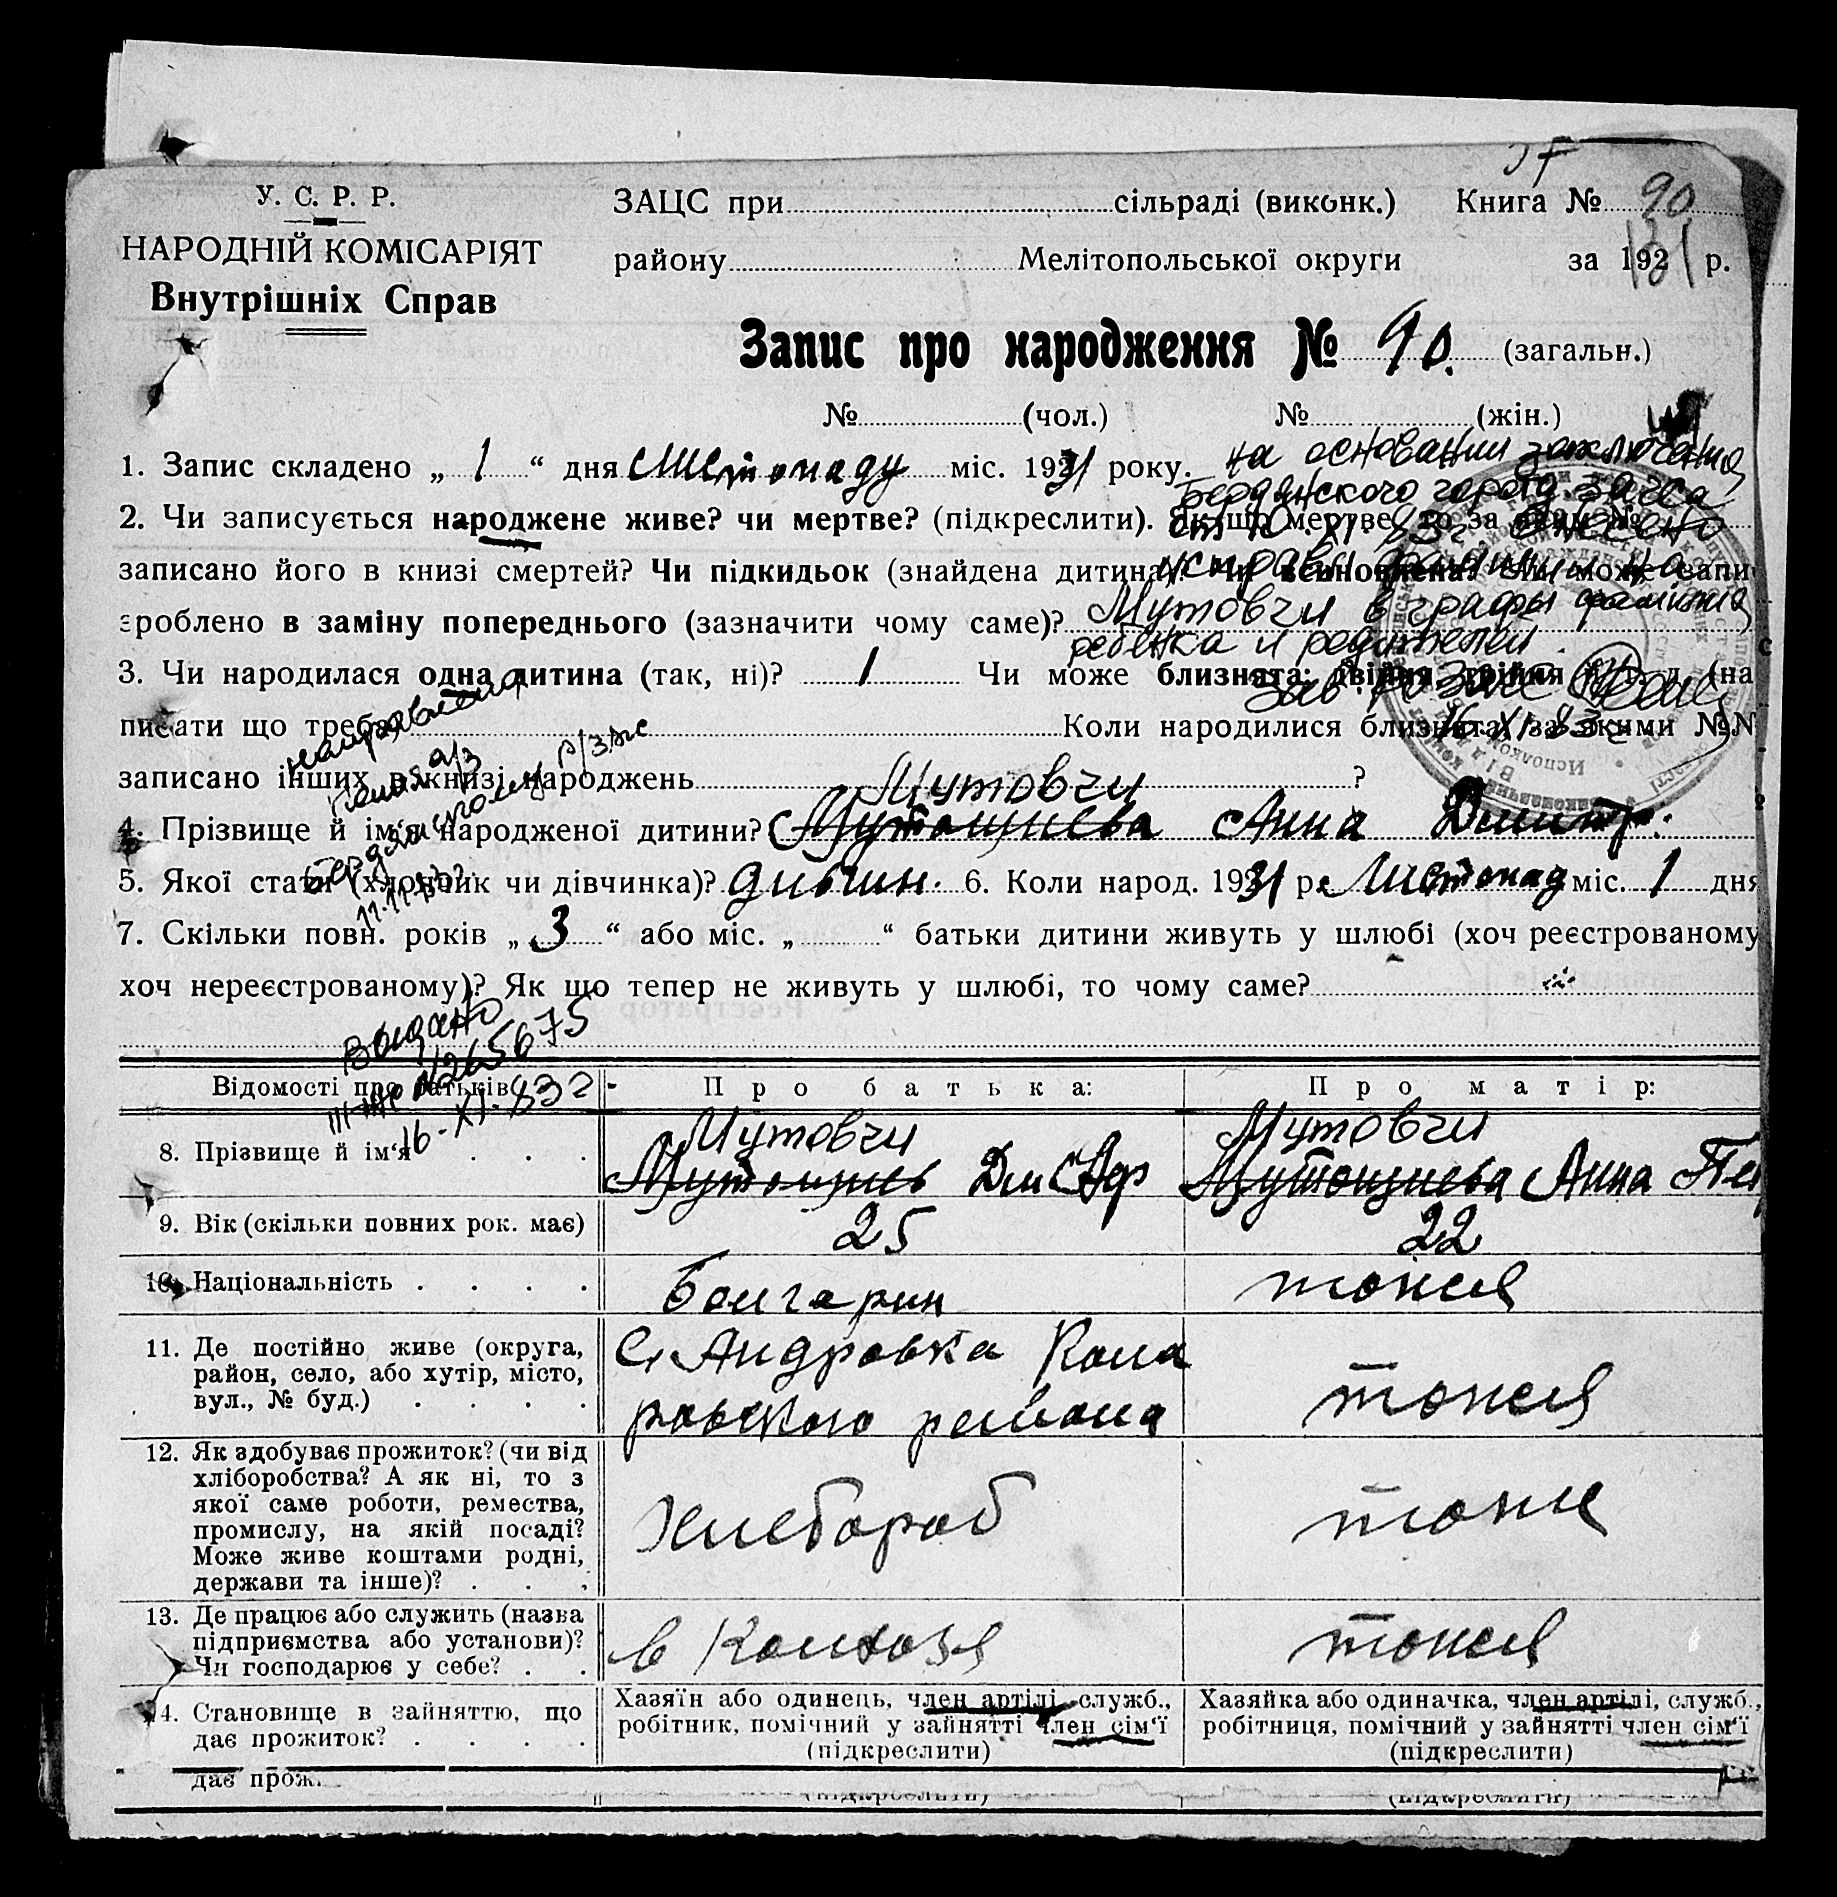 У. С. Р. Р.
НАРОДНІЙ КОМІСАРІЯТ
Внутрішніх Справ
ЗАЦС при сільраді (виконк.) Книга № 90
району Мелітопольської округи за 1931 р.
Запис про народження № 90. (загальн.)
№ (чол.) № (жін.)
1. Запис складено „ 1 “ дня Листопаду міс. 1931 року. на основании заключения
Бердянского загса
2. Чи записується народжене живе? чи мертве? (підкреслити). Якщо мертве, то за яким №
от 10.XI.83г внесено
записано його в книзі смертей? Чи підкидьок (знайдена дитина)? Чи може запи
исправл на
зроблено в заміну попереднього (зазначити чому саме)? Мутовчи в графы фамилия
ребенка и родителей.
3. Чи народилася одна дитина (так, ні)? 1 Чи може близнята: двійня, трійня й т. д. (на
Зав.
писати що треба) Коли народилися близнята, за якими №№
16.XI.83г
записано інших в книзі народжень ?
Мутовчи
4. Прізвище й ім‘я народженої дитини? Мутовчиева Анна Дмитр.
5. Якої стати (хлопчик чи дівчинка)? дивчин. 6. Коли народ. 1931 р. Листопад міс. 1 дня
11.11.83г.
7. Скільки повн. років „ 3 “ або міс. „ “ батьки дитини живуть у шлюбі (хоч реєстрованому
хоч нереєстрованому)? Як що тепер не живуть у шлюбі, то чому саме?
Выдано
№265675
16-XI.83г
Відомості про батьків Про батька: Про матір:
Мутовчи Мутовчи
8. Прізвище й ім‘я . . . Дм Анна Пет
9. Вік (скільки повних рок. має) 25 22
10. Національність . . . . Болгарин тоже
11. Де постійно живе (округа, район, село, або хутір, місто, вул., № буд.) . . . . С. Андровка Кола
ровского района тоже
12. Як здобуває прожиток? (чи від
хліборобства? А як ні, то з
якої саме роботи, ремества,
промислу, на якій посаді?
Може живе коштами родні,
держави та інше)? . . .
Хлебороб тоже
13. Де працює або служить (назва
підприємства або установи)?
Чи господарює у себе? . .
в Колхозе тоже
14. Становище в зайняттю, що
дає прожиток? . . . .
Хазяїн або одинець, член артілі, служб.,
робітник, помічний у зайнятті член сім‘ї
(підкреслити)
Хазяйка або одиначка, член артілі, служб.,
робітниця, помічний у зайнятті член сім‘ї
(підкреслити)
дає прож.
(підкреслити) (підкреслити)